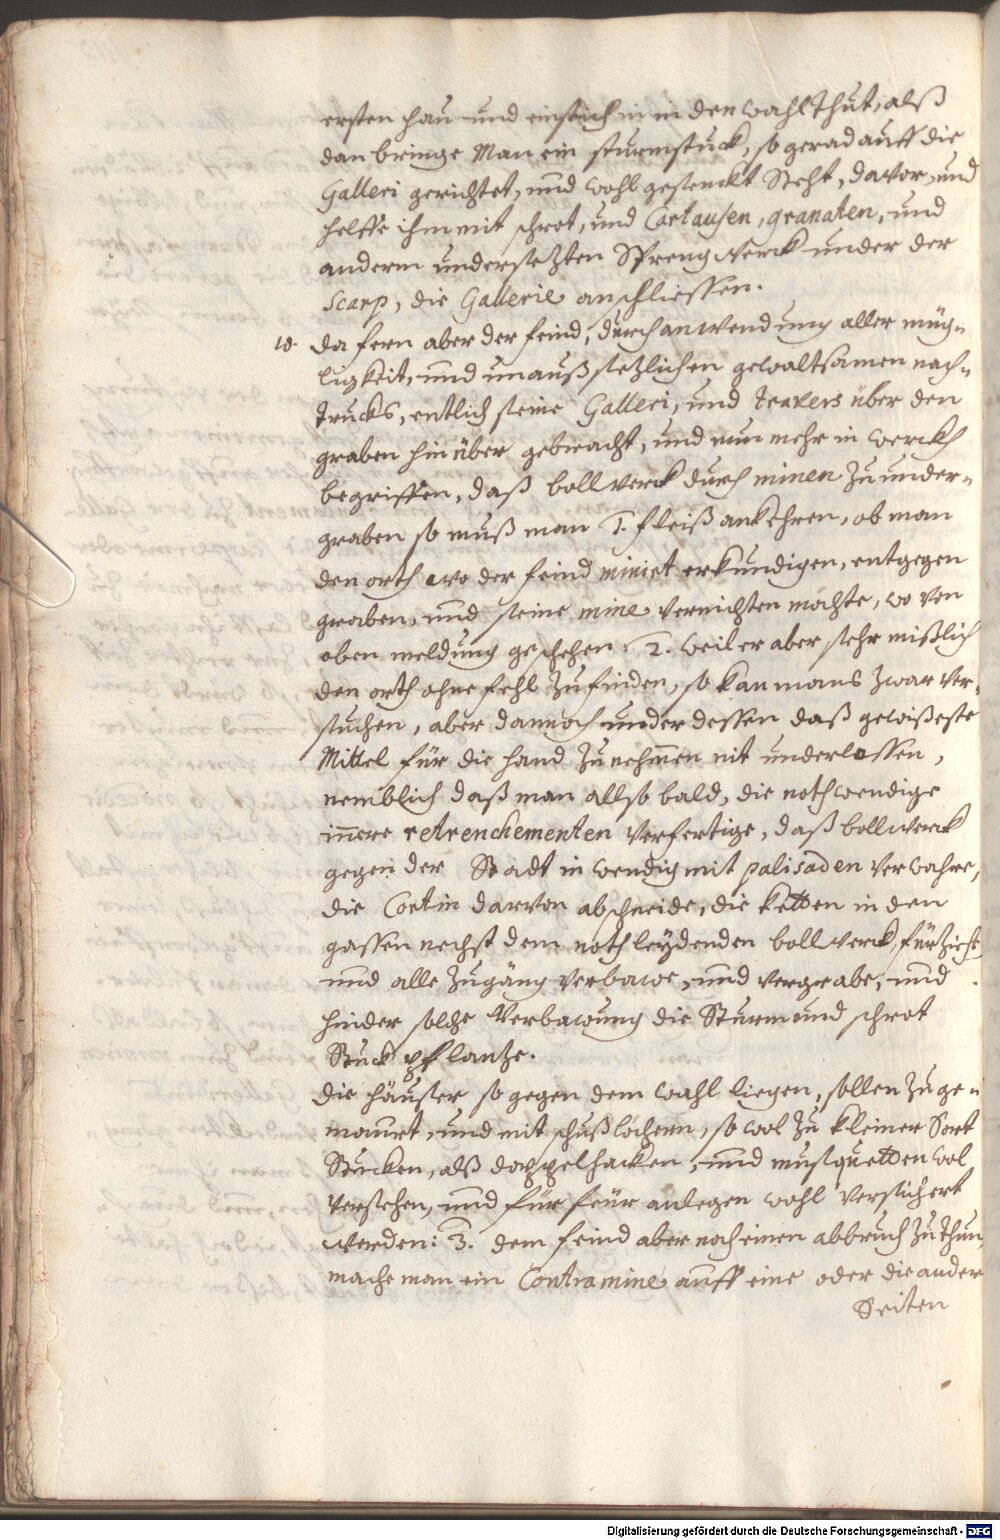 ersten hau und einstich in in den wahl thut, alß
dan bringe Man ein sturmstuck, so gerad auff die
Galleri gerichtet, und wohl gesenckt Steht, davor, und
helffe ihm mit schrot, und Cartausen, granaten, und
anderm undersetzten Spreng Werck under der
Scarp, die Gallerie anschliessen.
10. da fern aber der feind, durch anwendung aller müg¬
ligkeit, und unaußsetzlichen gewaltsamen nach¬
trucks, entlich seine Galleri, und travers über den
graben hinüber gebracht, und nun mehr in werckh
begriffen, daß bollwerck durch minen zu under¬
graben so muß man 1. fleiß ankehren, ob man
den orth wo der feind minirt erkundigen, entgegen
graben, und seine mine vernichten möchte, wo von
oben meldung geschehen. 2. weil er aber sehr mißlich
den orth ohne fehl zu finden, so kan mans zwar ver¬
suchen, aber dannoch under dessen daß gewißeste
Mittel für die hand zunehmen nit underlassen,
nemblich daß man allso bald, die nothwendige
innere retrenchementen verfertige, daß bollwerck
gegen der Stadt inwendig mit palisaden verwahre,
die Cortin darvon abschneide, die ketten in den
gassen nechst dem nothleydenden bollwerck, fürziehe,
und alle zugäng verbawe, und vergrabe, und
hinder solche Verbawung die Sturm und schrot
Stuck pflantze.
die häuser so gegen dem wahl liegen, sollen zu ge¬
maurt, und mit schußlöchern, so wol zu kleiner Sort
Stucken, alß doppelhacken, und musquetten wol
versehen, und für feür anlegen wohl versichert
werden: 3. dem feind aber noch einen abbruch zu thun,
mache man ein Contramine auff eine oder die ander
Seiten
Digitalisierung gefördert durch die Deutsche Forschungsgemeinschaft - DFG